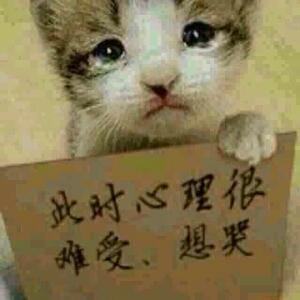 此时心理很
难受、想哭